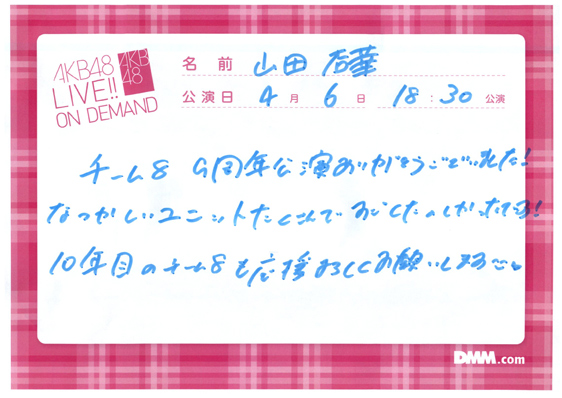 AKB48
LIVE!!
ON DEMAND
AKB
48
名前 山田 杏華
公演日 4月 6日 18:30 公演
チーム8 9周年公演ありがとうございました!
なつかしいユニットたくさんで たのしかったです!
10年目のチーム8も応援よろしくお願いします
DMM.com